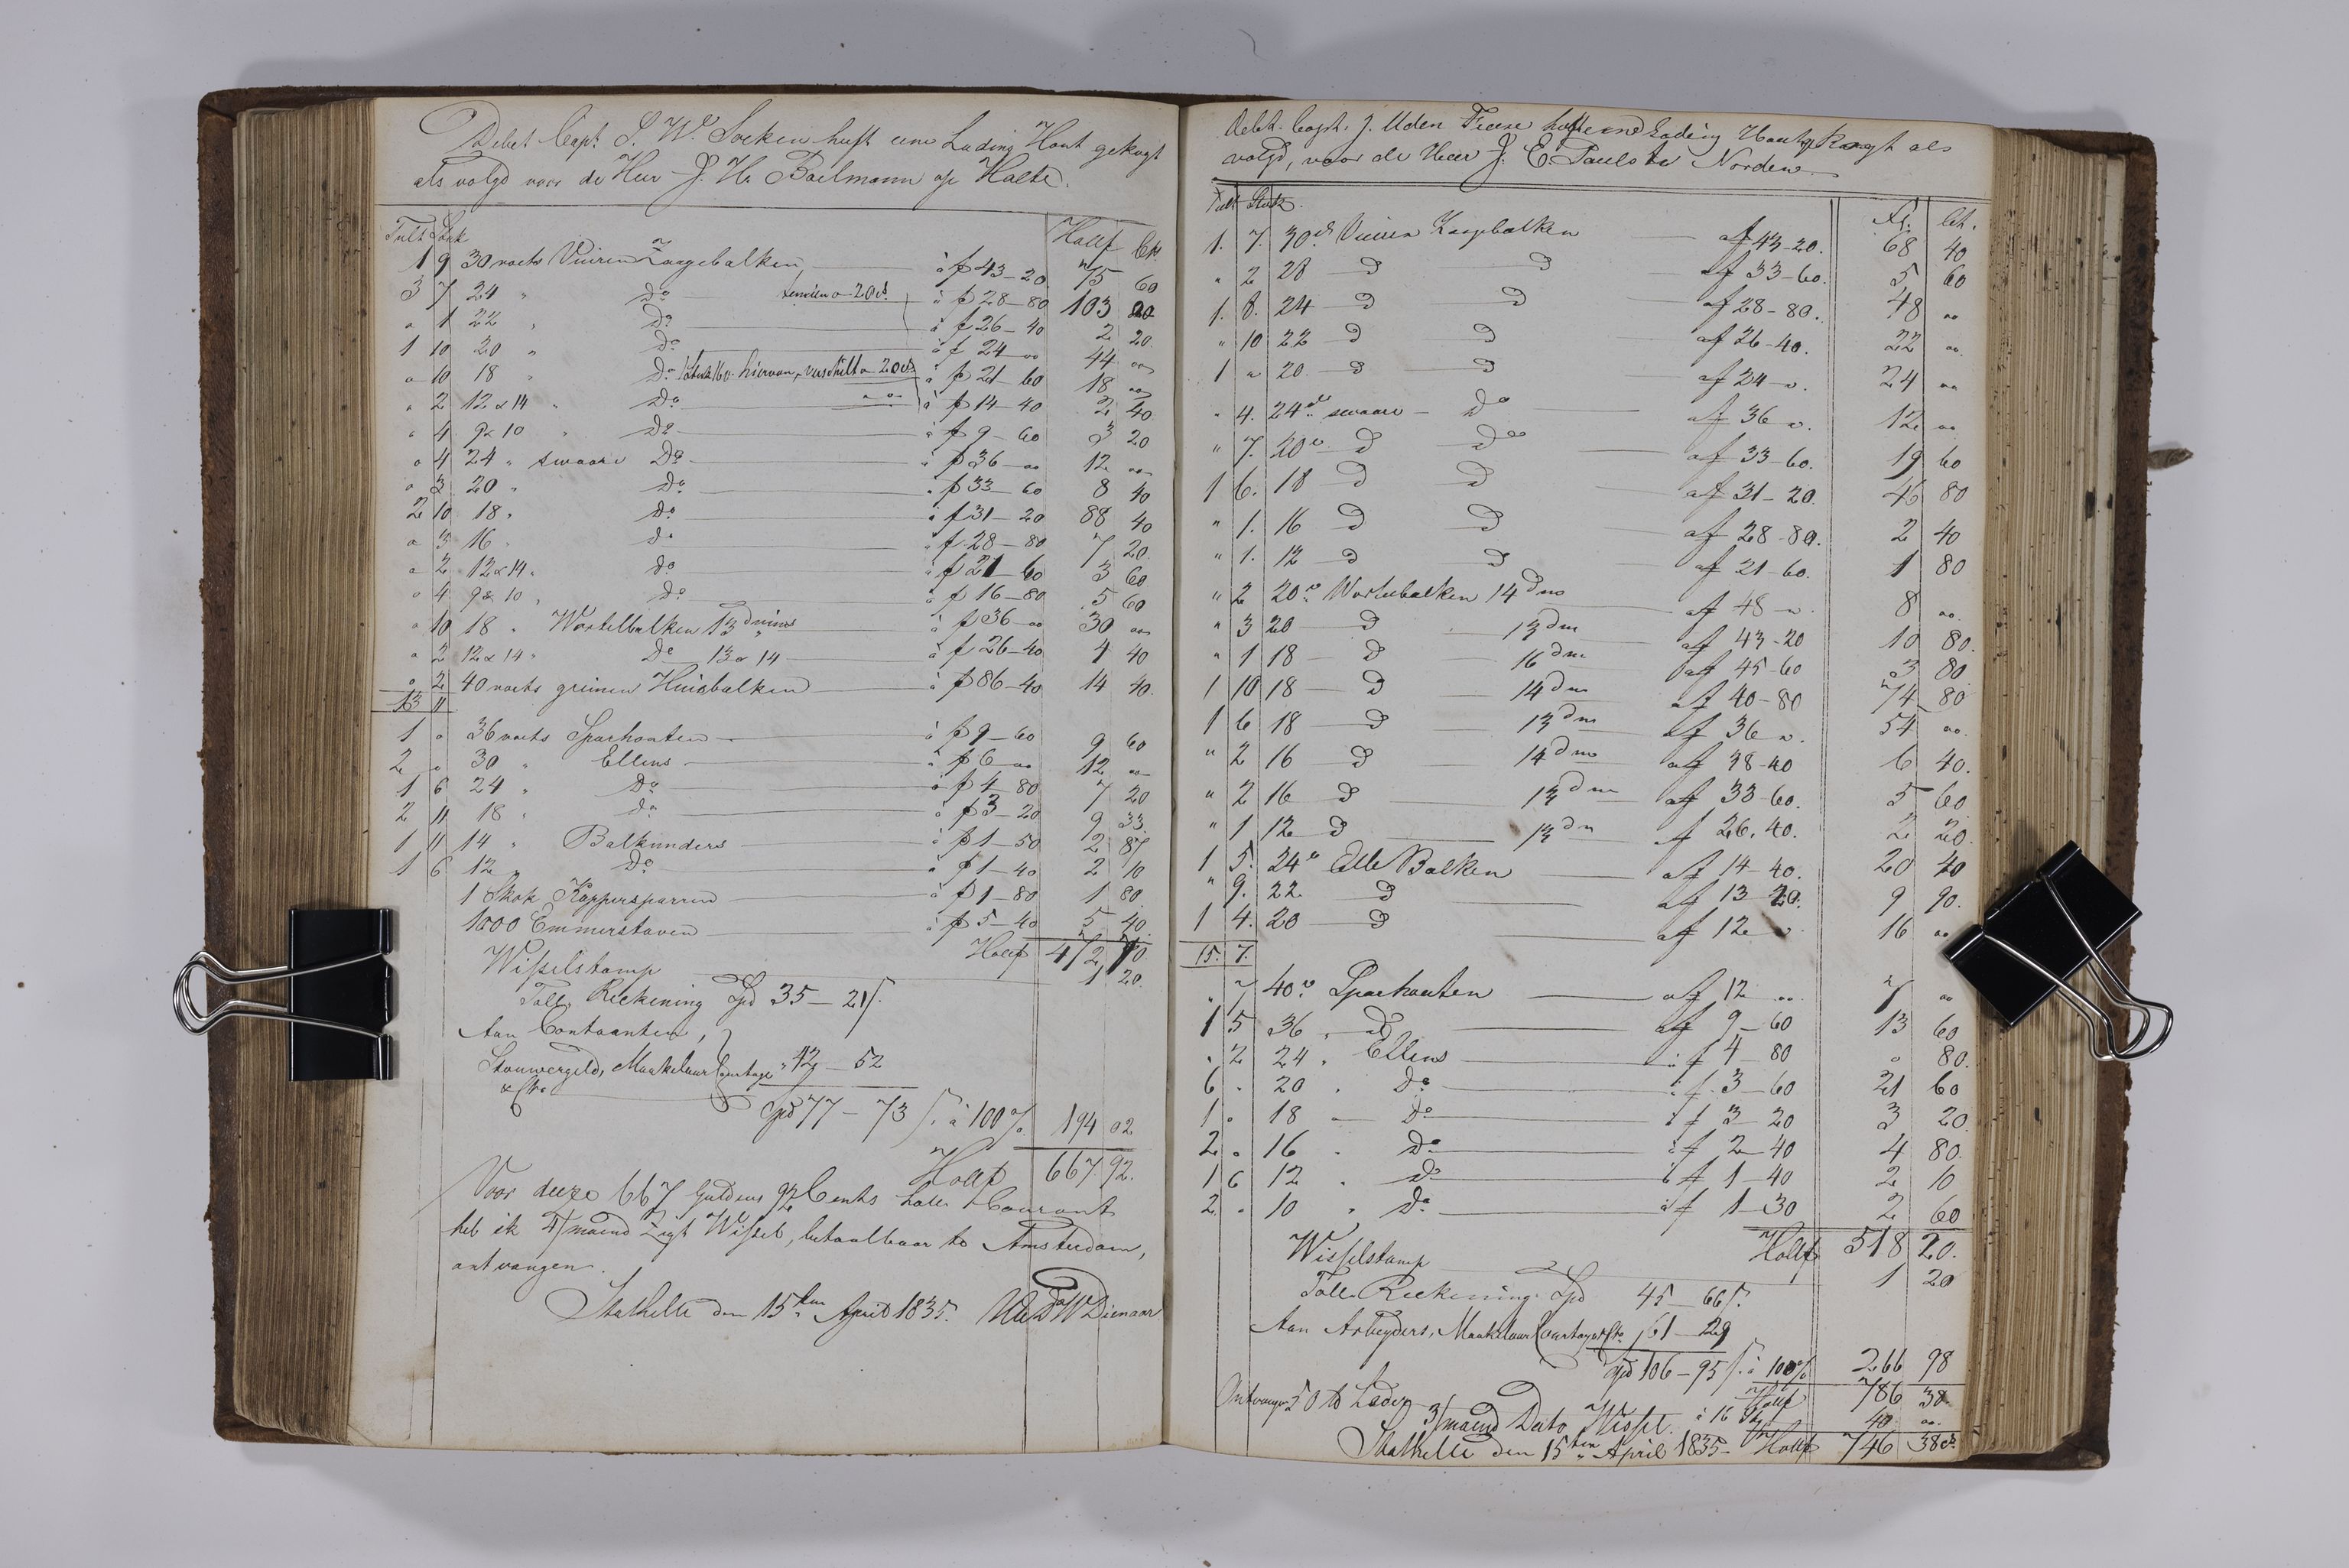 Debet Capt. S. W. Soeken heeft eene Lading Hout gekogt
als volgd voor de Heer J. H. Boelmann op Halte.
Tult Stuk Hollf Cts
1 9 30 voets Vuiren Zaagebalken, à f 43-20. 75 60
3 7 24 " Do à f 28-80 103 20
" 1 22 " Do à f 26-40 2 20
1 10 20 " Do à f 24 " 44 "
" 10 18 " Do hiervan verschilt à 20 cts à f 21-60 18 "
" 2 12 & 14 " Do à f 14-40 2 40
" 4 9 & 10 " Do à f 9-60 3 20
" 4 24 " swaare Do à f 36 " 12 "
" 3 20 " Do à f 33-60 8 40
2 10 18 " Do à f 31-20 88 40
" 3 16 " Do à f 28-80 7 20
" 2 12 & 14 " Do à f 21-60 3 60
" 4 9 & 10 " Do à f 16-80 5 60
" 10 18 " Wortelbalken 13 dmins à f 36 " 30 "
" 2 12 & 14 " Do 13 à 14 à f 26-40 4 40
" 2 40 voets greinen Huisbalken à f 86-40 14 40
13 11
1 " 36 voets Sparhouten à f 9-60 9 60
2 " 30 " Ellens à f 6 " 12 "
1 6 24 " Do à f 4-80 7 20
2 11 18 " Do à f 3-20 9 33
1 11 14 " Balkunders à f 1-50 2 87
1 6 12 " Do à f 1-40 2 10
1 Skok Koppersparren à f 1-80 1 80
1000 Emmerstaven à f 5-40 5 40
Hollf 472 70
Wisselstamp 1 20
Toll Reekening Spd 35-21 ß.
Aan Contanten,
Stouwergeld, Maakelaar Courtage " 42-52
& Ctra
Spd 77-73 ß. à 100% 194 02
Hollf 667 92.
Voor deeze 667 Guldens 92 Cents holl. Courant
heb ik 4/maend Zigt Wissel, betaalbaar te Amsterdam,
ontvangen.
Stathelle den 15ten April 1835. Dienaar
Debt. Capt. J. Uden Fiaxe heft eene Lading Hout gekongt als
volgd, voor de Heer J. E. Pauls te Norden.
Tult Stuk. Fl. Ct.
1. 7. 30 d. Vuiren Zaagebalken af 43-20. 68 40
" 2 28 D D af 33-60. 5 60
1. 8. 24 D D af 28-80. 48 "
" 10 22 D D af 26-40. 22 "
1 " 20 D D af 24 " 24 "
" 4. 24 swaare Do af 36 " 12 "
" 7. 20 D Do af 33-60. 19 60
1 6. 18 D D af 31-20. 46 80
" 1. 16 D D af 28-80. 2 40
" 1. 12 D D af 21-60. 1 80
" 2 20 Wortelbalken 14 dm af 48 " 8 "
" 3 20 D 13 dm af 43-20 10 80.
" 1 18 D 16 dm af 45-60 3 80
1 10 18 D 14 dm af 40-80 74 80
1 6 18 D 13 dm af 36 " 54 "
" 2 16 D 14 dm af 38-40 6 40.
" 2 16 D 13 dm af 33-60. 5 60
" 1 12 D 13 dm f 26.40. 2 20
1 5. 24 Elle Balken af 14-40. 20 40
" 9. 22. D af 13-20. 9 90.
1 4. 20 D af 12 " 16 "
15. 7.
" 7 40 Sparhouten af 12 " 7 "
1 5 36 " D af 9-60 13 60
" 2 24 " Ellens à f 4-80 " 80.
6 " 20 " Do à f 3-60 21 60
1 " 18 Do à f 3-20 3 20
2 " 16 " Do à f 2-40 4 80.
1 6 12 " Do à f 1-40 2 10
2 " 10 " Do à f 1-30 2 60
Hollf 518 20.
Wisselstamp 1 20
Toll Reekening Spd 45-66 ß.
Aan Arbeyders, Maakelaar Courtage & Ctra 61-29
Spd 106-95 ß. à 100% 266 98
Hollf 786 38
Ontvangen 50 tb à 16 40 "
3/maend Dato Wissel. Hollf 746 38 ct.
Stathelle den 15ten April 1835